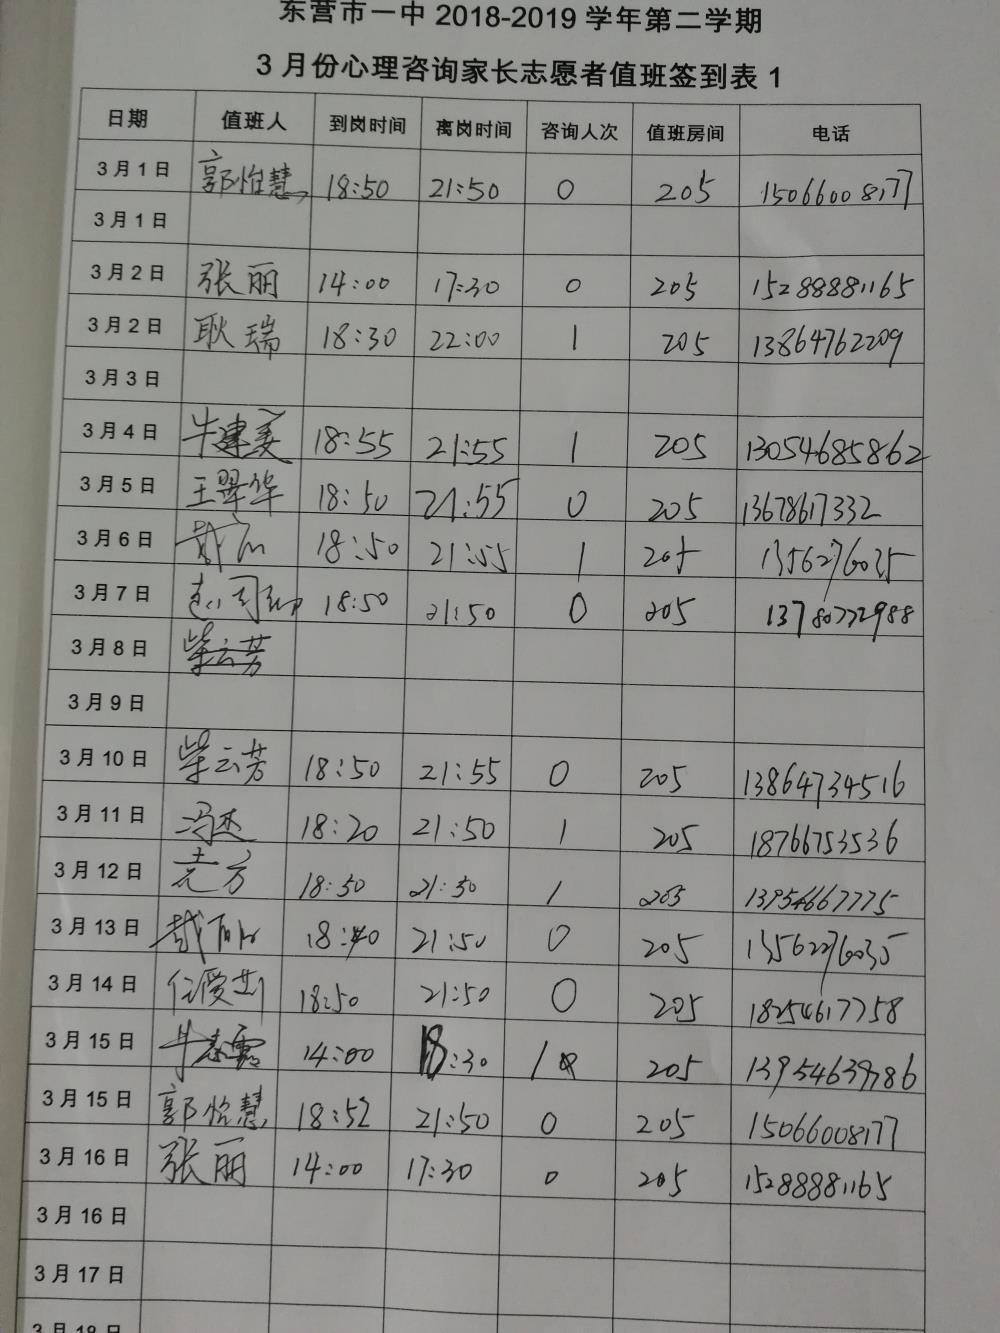 东营市一中 2018-2019 学年第二学期
3 月份心理咨询家长志愿者值班签到表 1
日期 值班人 到岗时间 离岗时间 咨询人次 值班房间 电话
3 月 1 日 郭怡慧 18:50 21:50 0 205 15066008177
3 月 1 日
3 月 2 日 张丽 14:00 17:30 0 205 15288881165
3 月 2 日 耿瑞 18:30 22:00 1 205 13864762209
3 月 3 日
3 月 4 日 牛建美 18:55 21:55 1 205 13054685862
3 月 5 日 王翠华 18:50 21:55 0 205 13678617332
3 月 6 日 18:50 21:55 1 205 13562276035
3 月 7 日 18:50 21:50 0 205 13780772988
3 月 8 日 柴云芳
3 月 9 日
3 月 10 日 柴云芳 18:50 21:55 0 205 13864734516
3 月 11 日 冯杰 18:20 21:50 1 205 18766753536
3 月 12 日 18:50 21:50 1 205 13954667775
3 月 13 日 18:40 21:50 0 205 13562276035
3 月 14 日 任爱 18:50 21:50 0 205 18254617758
3 月 15 日 14:00 18:30 1 205 13954639786
3 月 15 日 郭怡慧 18:52 21:50 0 205 15066008177
3 月 16 日 张丽 14:00 17:30 0 205 15288881165
3 月 16 日
3 月 17 日
3 月 18 日